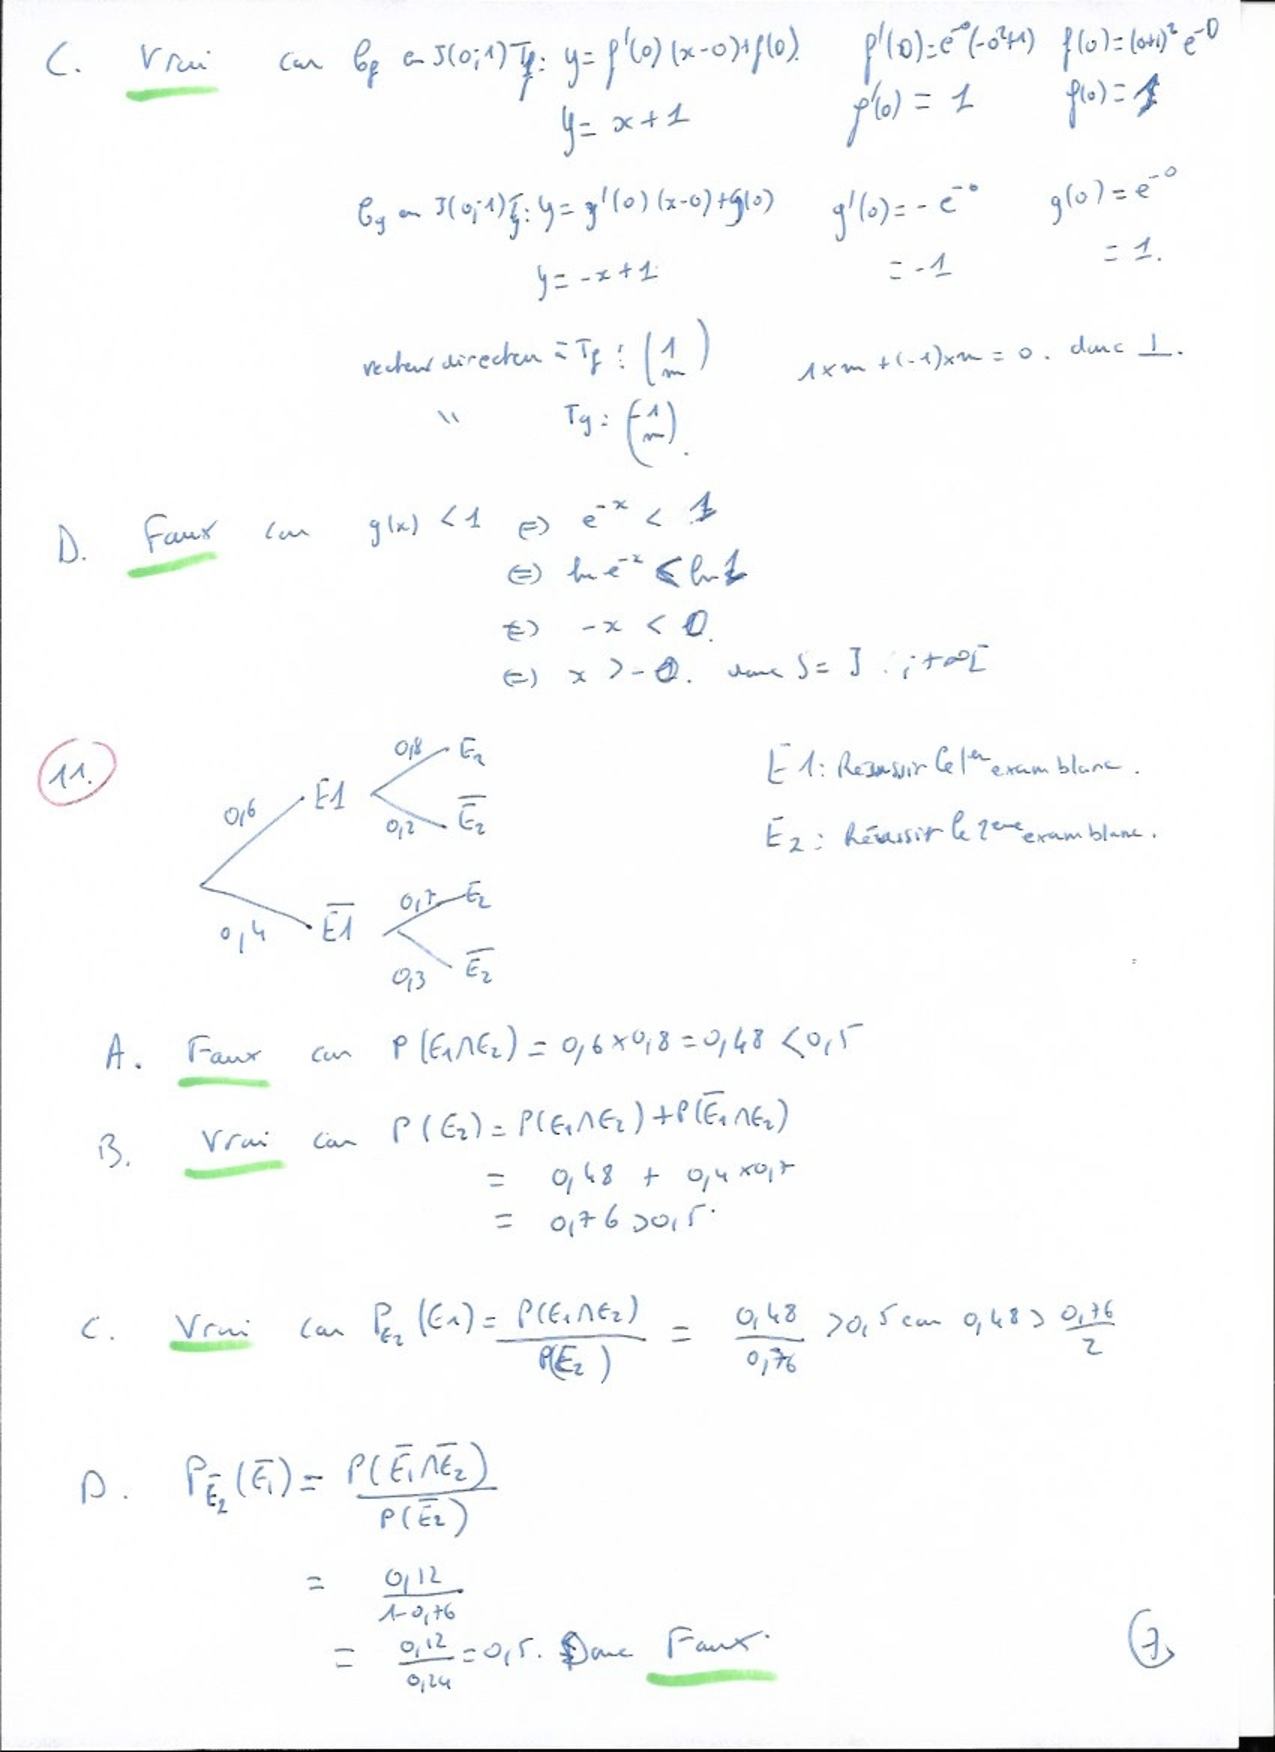 C. Vrai car Cf en J(0;1) Tf: y = f'(0)(x-0)+f(0). f'(0)=e^-0(-0²+1) f(0)=(0+1)² e^-0
y = x+1 f'(0) = 1 f(0) = 1
Cg en J(0;1) Tg: y = g'(0)(x-0)+g(0) g'(0) = -e^-0 g(0) = e^-0
y = -x+1 = -1 = 1.
vecteur directeur = Tf : (1 m) 1×m+(-1)×m = 0. donc ⊥.
" Tg : (-1 m).
D. Faux car g(x) < 1 ⇔ e^-x < 1
⇔ ln e^-x < ln 1
⇔ -x < 0.
⇔ x > -0. donc S = ] ; +∞[
11.
0,6 E1 0,8 E2
0,2 E̅2
0,4 E̅1 0,7 E2
0,3 E̅2
E1: Réussir le 1er exam blanc.
E2: Réussir le 2ème exam blanc.
A. Faux car P(E1∩E2) = 0,6×0,8 = 0,48 < 0,5
B. Vrai car P(E2) = P(E1∩E2)+P(E̅1∩E2)
= 0,48 + 0,4×0,7
= 0,76 > 0,5.
C. Vrai car P_E2(E1) = P(E1∩E2)/P(E2) = 0,48/0,76 > 0,5 car 0,48 > 0,76/2
D. P_E̅2(E̅1) = P(E̅1∩E̅2)/P(E̅2)
= 0,12/1-0,76
= 0,12/0,24 = 0,5. Donc Faux.
7